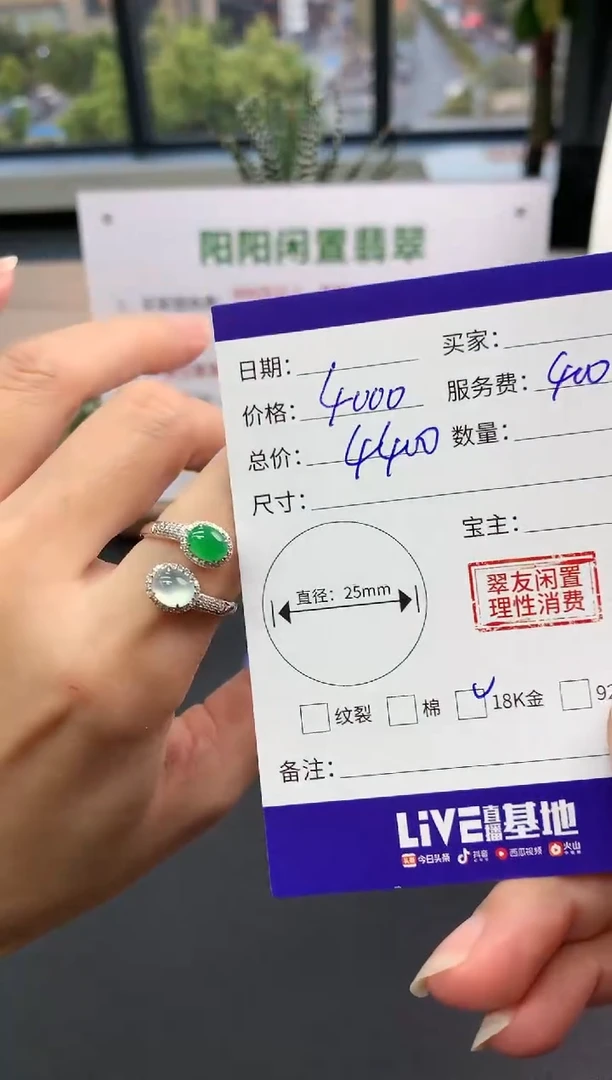 阳阳闲置翡翠
日期：
买家：
价格：4000
服务费：400
总价：4400
数量：
尺寸：
宝主：
直径：25mm
翠友闲置
理性消费
纹裂 棉 18K金 92
备注：
LiVE直播基地
今日头条 抖音 西瓜视频 火山